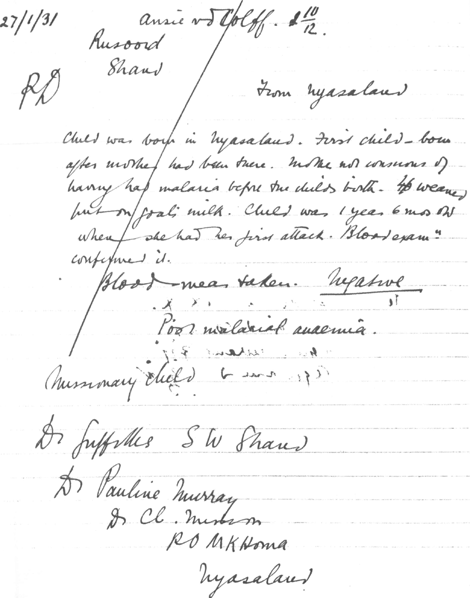 27/1/31 Ansie vd Colff. 2 10/12.
Rusoord
Strand
RD
From Nyasaland
Child was born in Nyasaland. First child - born
after mother had been there. Mother not conscious of
having had malaria before the childs birth. weaned
put on goats milk. Child was 1 year 6 mos old
when she had her first attack. Blood exam
confirmed it.
Blood smear taken. Negative
Post malarial anaemia.
Missionary child
Dr S W Strand
Dr Pauline Murray
Dr Ch. Mission
P O Mkhoma
Nyasaland